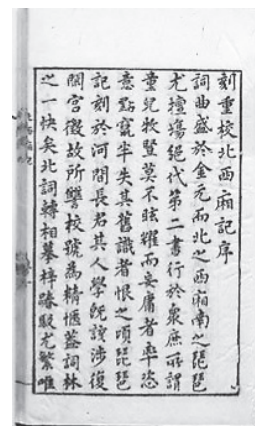 刻重校北西廂記序
詞曲盛於金元而北之西廂南之琵琶
尤擅塲絕代第二書行於衆庶所謂
童兒牧豎莫不眩耀而妄庸者率恣
意點竄半失其舊識者恨之頃琵琶
記刻於河間長君其人學旣該涉復
閑宮徵故所讐校號爲精愜葢詞林
之一快矣北詞轉相摹梓踳駁尤繁唯